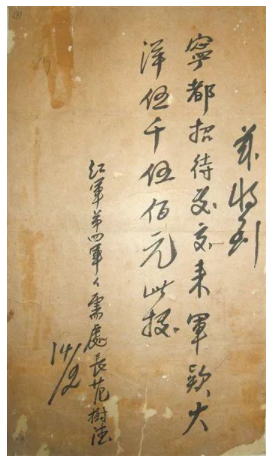 兹收到
寧都招待处交来軍欵大
洋伍千伍佰元此据
红軍第四軍々需處長范樹德
14/2